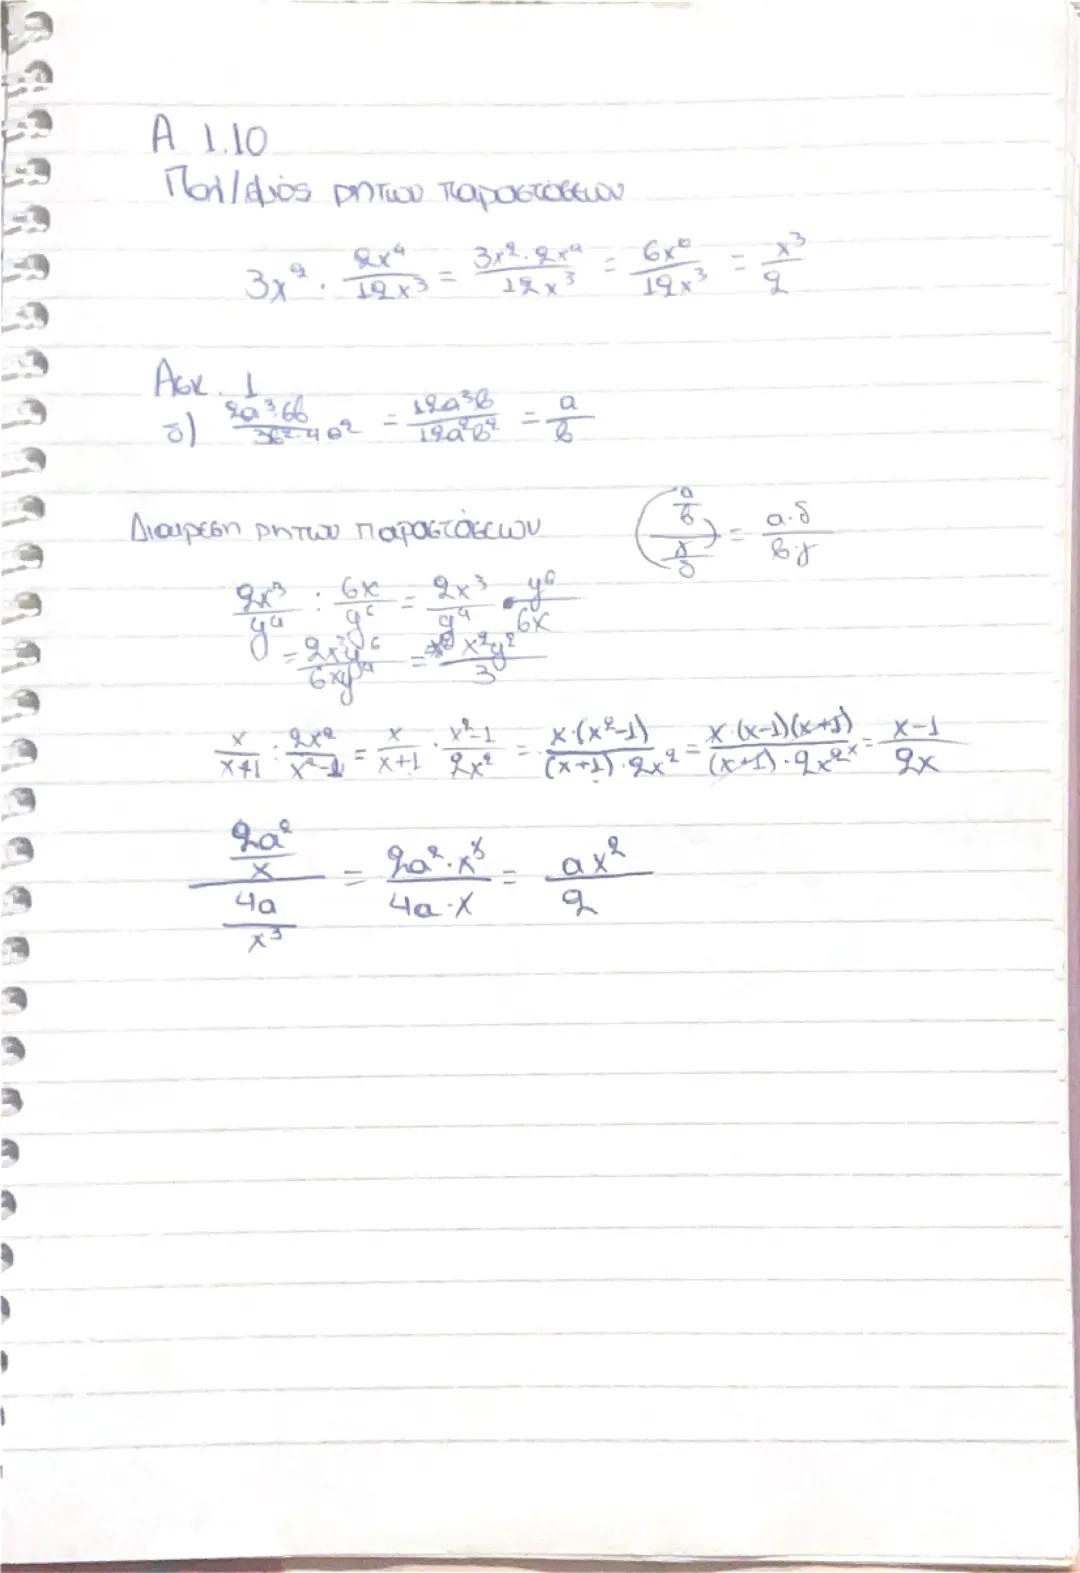 Α 1.10
Πολ/σμός ρητων παραστάσεων
3x² · 2x⁴/12x³ = 3x²·2x⁴/12x³ = 6x⁶/12x³ = x³/2
Ασκ. 1
δ) 2α³·6β/3β²·4α² = 12α³β/12α²β² = α/β
Διαιρεση ρητων παραστάσεων ((α/β)/(γ/δ)) = α·δ/β·γ
2x³/y⁴ : 6x/y⁶ = 2x³/y⁴ · y⁶/6x
= 2x³y⁶/6xy⁴ = x²y²/3
x/x+1 : 2x²/x²-1 = x/x+1 · x²-1/2x² = x·(x²-1)/(x+1)·2x² = x·(x-1)(x+1)/(x+1)·2x² x = x-1/2x
(2α²/x)/(4α/x³) = 2α²·x³/4α·x = αx²/2